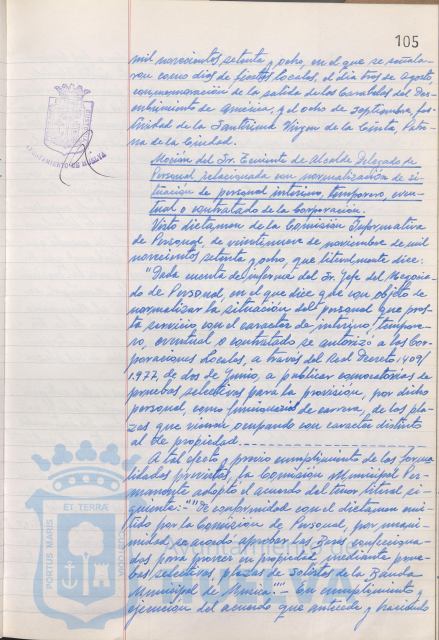 105
mil novecientos setenta y ocho, en el que se señala-
ron como días de fiestas locales, el día tres de Agosto,
conmemoración de la salida de las Carabelas del Des-
cubrimiento de América, y el ocho de Septiembre, fes-
tividad de la Santísima Virgen de la Cinta, Patro-
na de la Ciudad.
Moción del Sr. Teniente de Alcalde Delegado de
Personal relacionada con normalización de si-
tuación de personal interino, temporero, even-
tual o contratado de la Corporación.
Visto dictamen de la Comisión Informativa
de Personal, de veintinueve de noviembre de mil
novecientos setenta y ocho, que literalmente dice:
"Dada cuenta de informe del Sr. Jefe del Negocia-
do de Personal, en el que dice que con objeto de
normalizar la situación del personal que pres-
ta servicio, con el carácter de interino, tempore-
ro, eventual o contratado se autorizó a las Cor-
poraciones Locales, a través del Real Decreto 1409/
1.977, de dos de Junio, a publicar convocatorias de
pruebas selectivas para la provisión, por dicho
personal, como funcionarios de carrera, de las pla-
zas que vienen ocupando con carácter distinto
al de propiedad.
A tal efecto, y previo cumplimiento de las forma-
lidades previstas, la Comisión Municipal Per-
manente adoptó el acuerdo del tenor literal si-
guiente:-""De conformidad con el dictamen emi-
tido por la Comisión de Personal, por unani-
midad se acordó aprobar las Bases confecciona-
das para proveer en propiedad, mediante prue-
bas selectivas, plazas de Solistas de la Banda
Municipal de Música.""- En cumplimiento y
ejecución del acuerdo que antecede y habiendo
AYUNTAMIENTO DE HUELVA
PORTUS MARIS
ET TERRÆ
CUSTODIA
Ayuntamiento